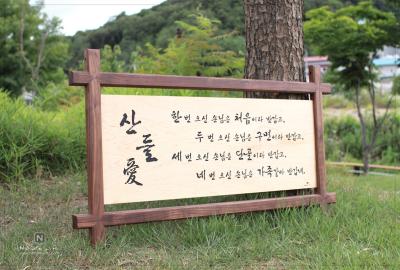 산들愛
한번 오신 손님은 처음이라 반갑고,
두번 오신 손님은 구면이라 반갑고,
세번 오신 손님은 단골이라 반갑고,
네번 오신 손님은 가족같아 반갑네.
N